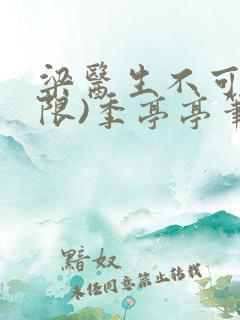 梁医生不可
限)季亭亭
黯奴
未经同意禁止转载